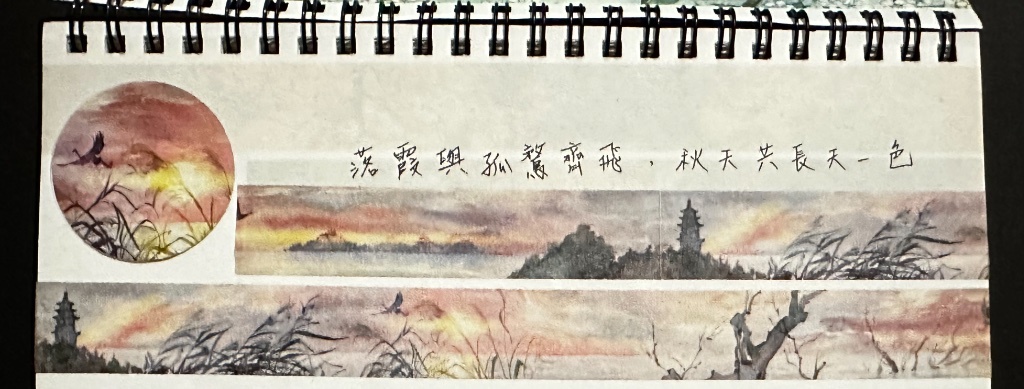 落霞與孤鶩齊飛，秋天共長天一色